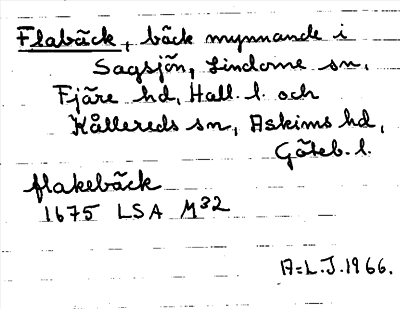 Flabäck, bäck mynnande i
Sagsjön, Lindome sn,
Fjäre hd, Hall. l. och
Kållereds sn, Askims hd,
Göteb. l.
flakebäck
1675 LSA M32
A=L.J.1966.